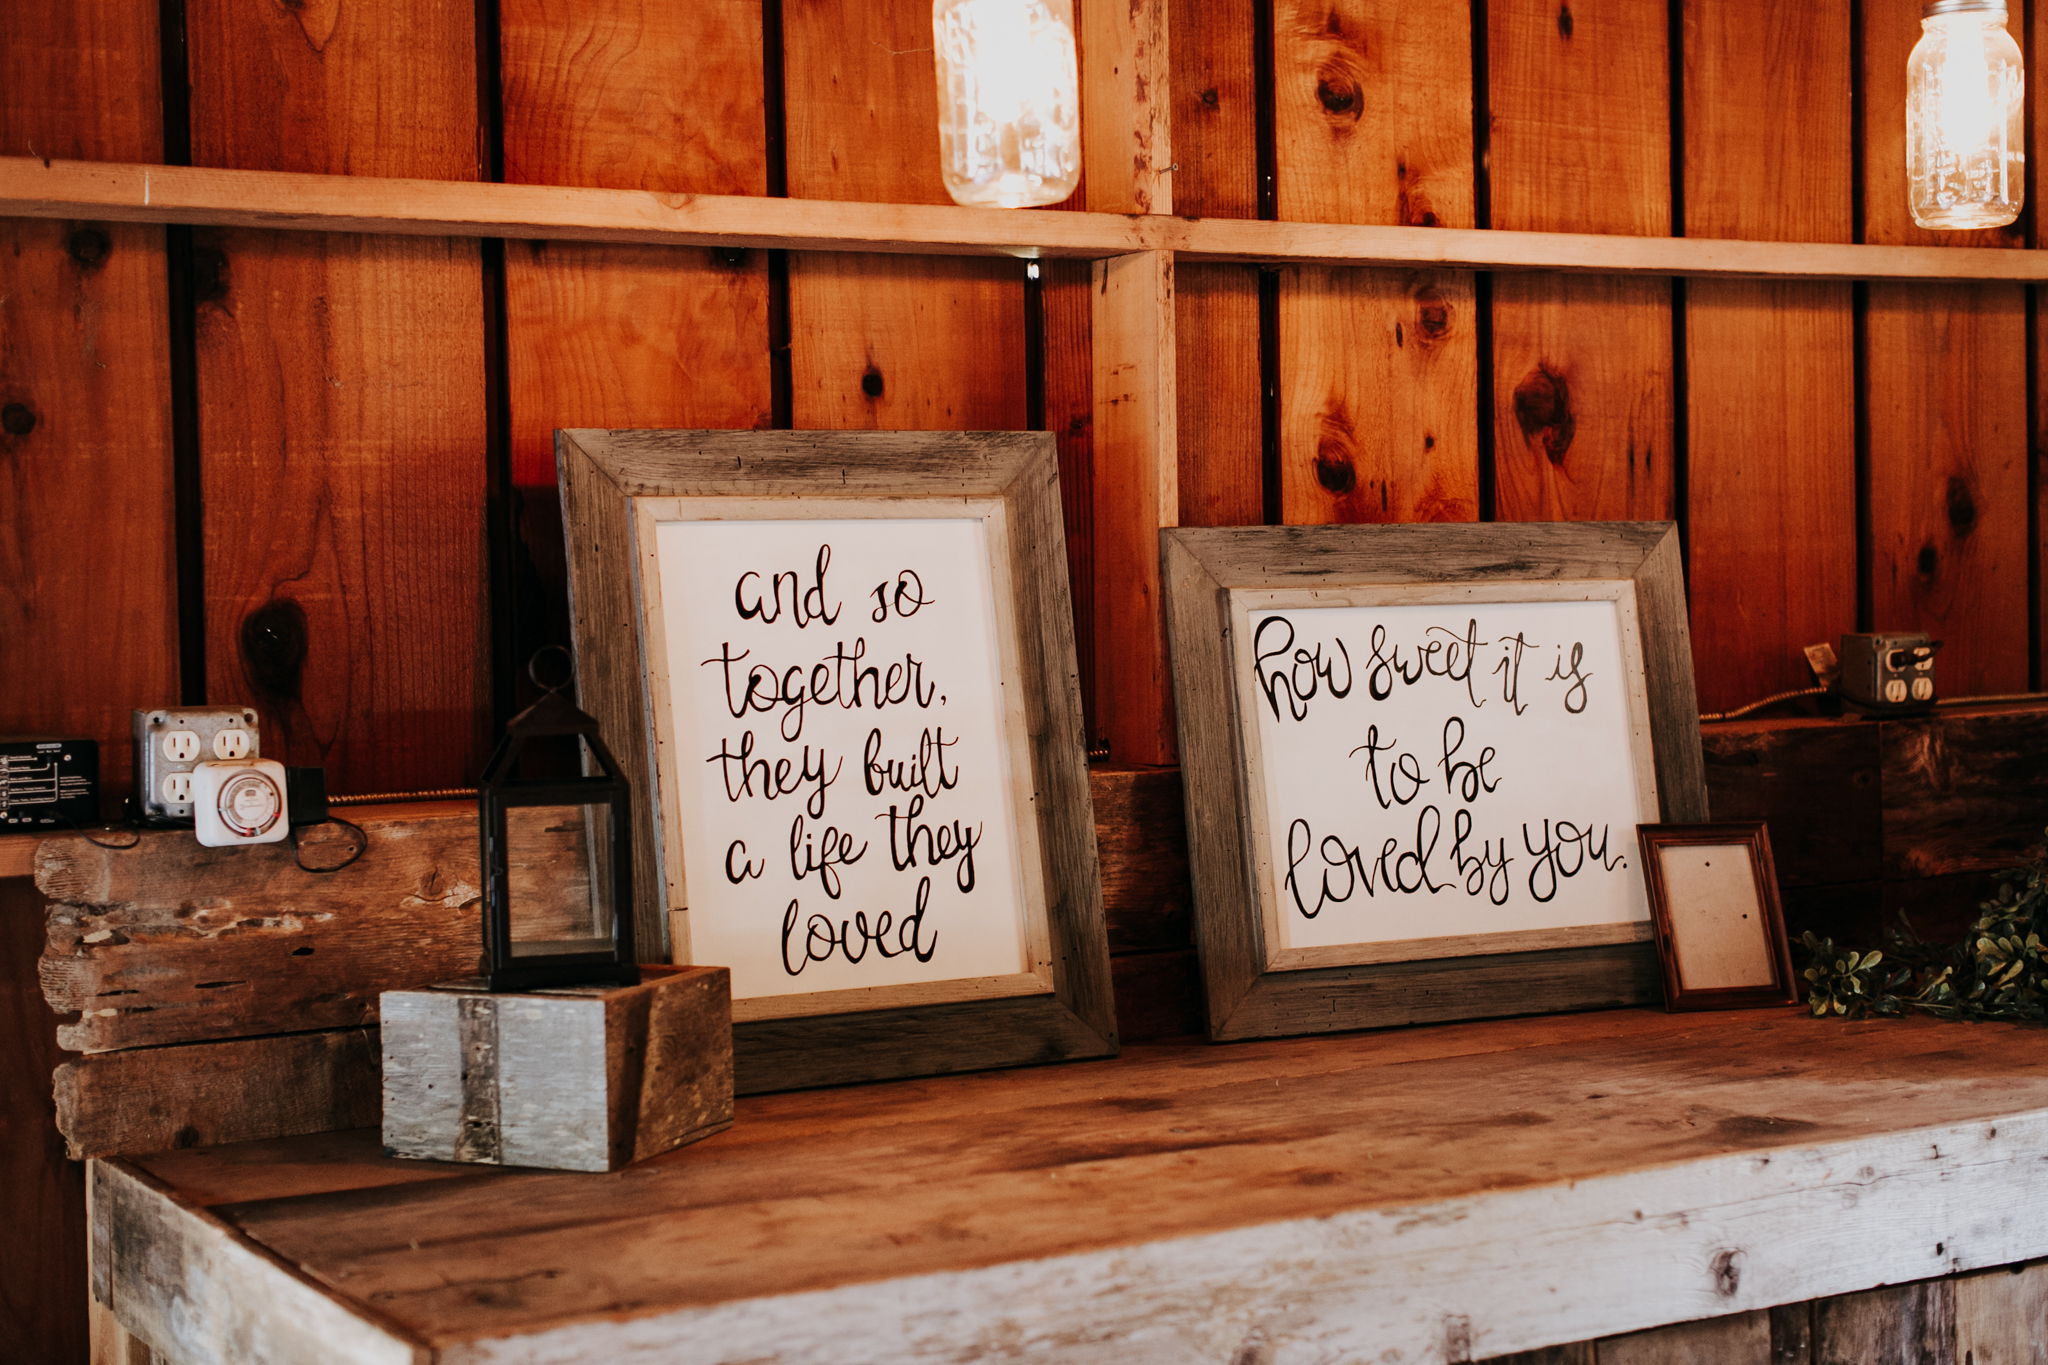 and so
together,
they built
a life they
loved
how sweet it is
to be
loved by you.